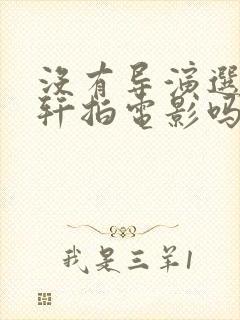 没有导演選
轩拍電影吗
我是三羊1